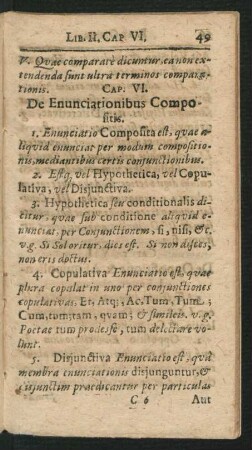 LIB. II. CAP VI. 49
V. Quae comparatè dicuntur, ea non ex-
tendenda sunt ultra terminos compara-
tionis.
CAP. VI.
De Enunciationibus Compo-
sitis.
1. Enunciatio Composita est, quae a-
liqvid enunciat per modum compositio-
nis, mediantibus certis conjunctionibus.
2. Estq, vel Hypothetica, vel Copu-
lativa, vel Disjunctiva.
3. Hypothetica seu conditionalis di-
citur, quae sub conditione aliqvid e-
nunciat, per Conjunctionem, si, nisi, &c.
v.g. Si Sol oritur, dies est. Si non disces,
non eris doctus.
4. Copulativa Enunciatio est, quae
plura copulat in uno per conjunctiones
copulativas, Et, Atq;, Ac, Tum, Tum;
Cum, tum; tam, quam; & similes. v.g.
Poetae tum prodesse, tum delectare vo-
lunt.
5. Disjunctiva Enunciatio est, quâ
membra enunciationis disjunguntur, &
disjunctim praedicantur per particulas
C 6 Aut